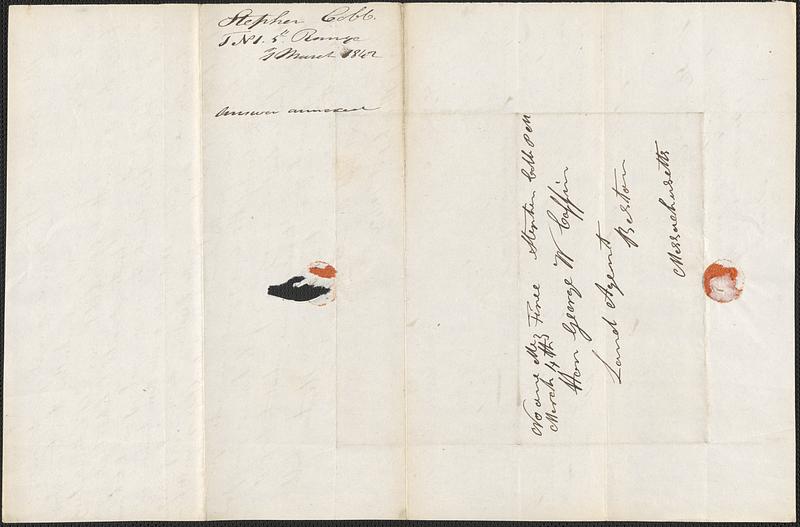 Stephen Cobb.
T No 1. 5th Range
3 March 1842
Answer annexed
No one Me. Free Stephen Cobb P M
March 4th
Hon George W Coffin
Land Agent
Boston
Massachusetts